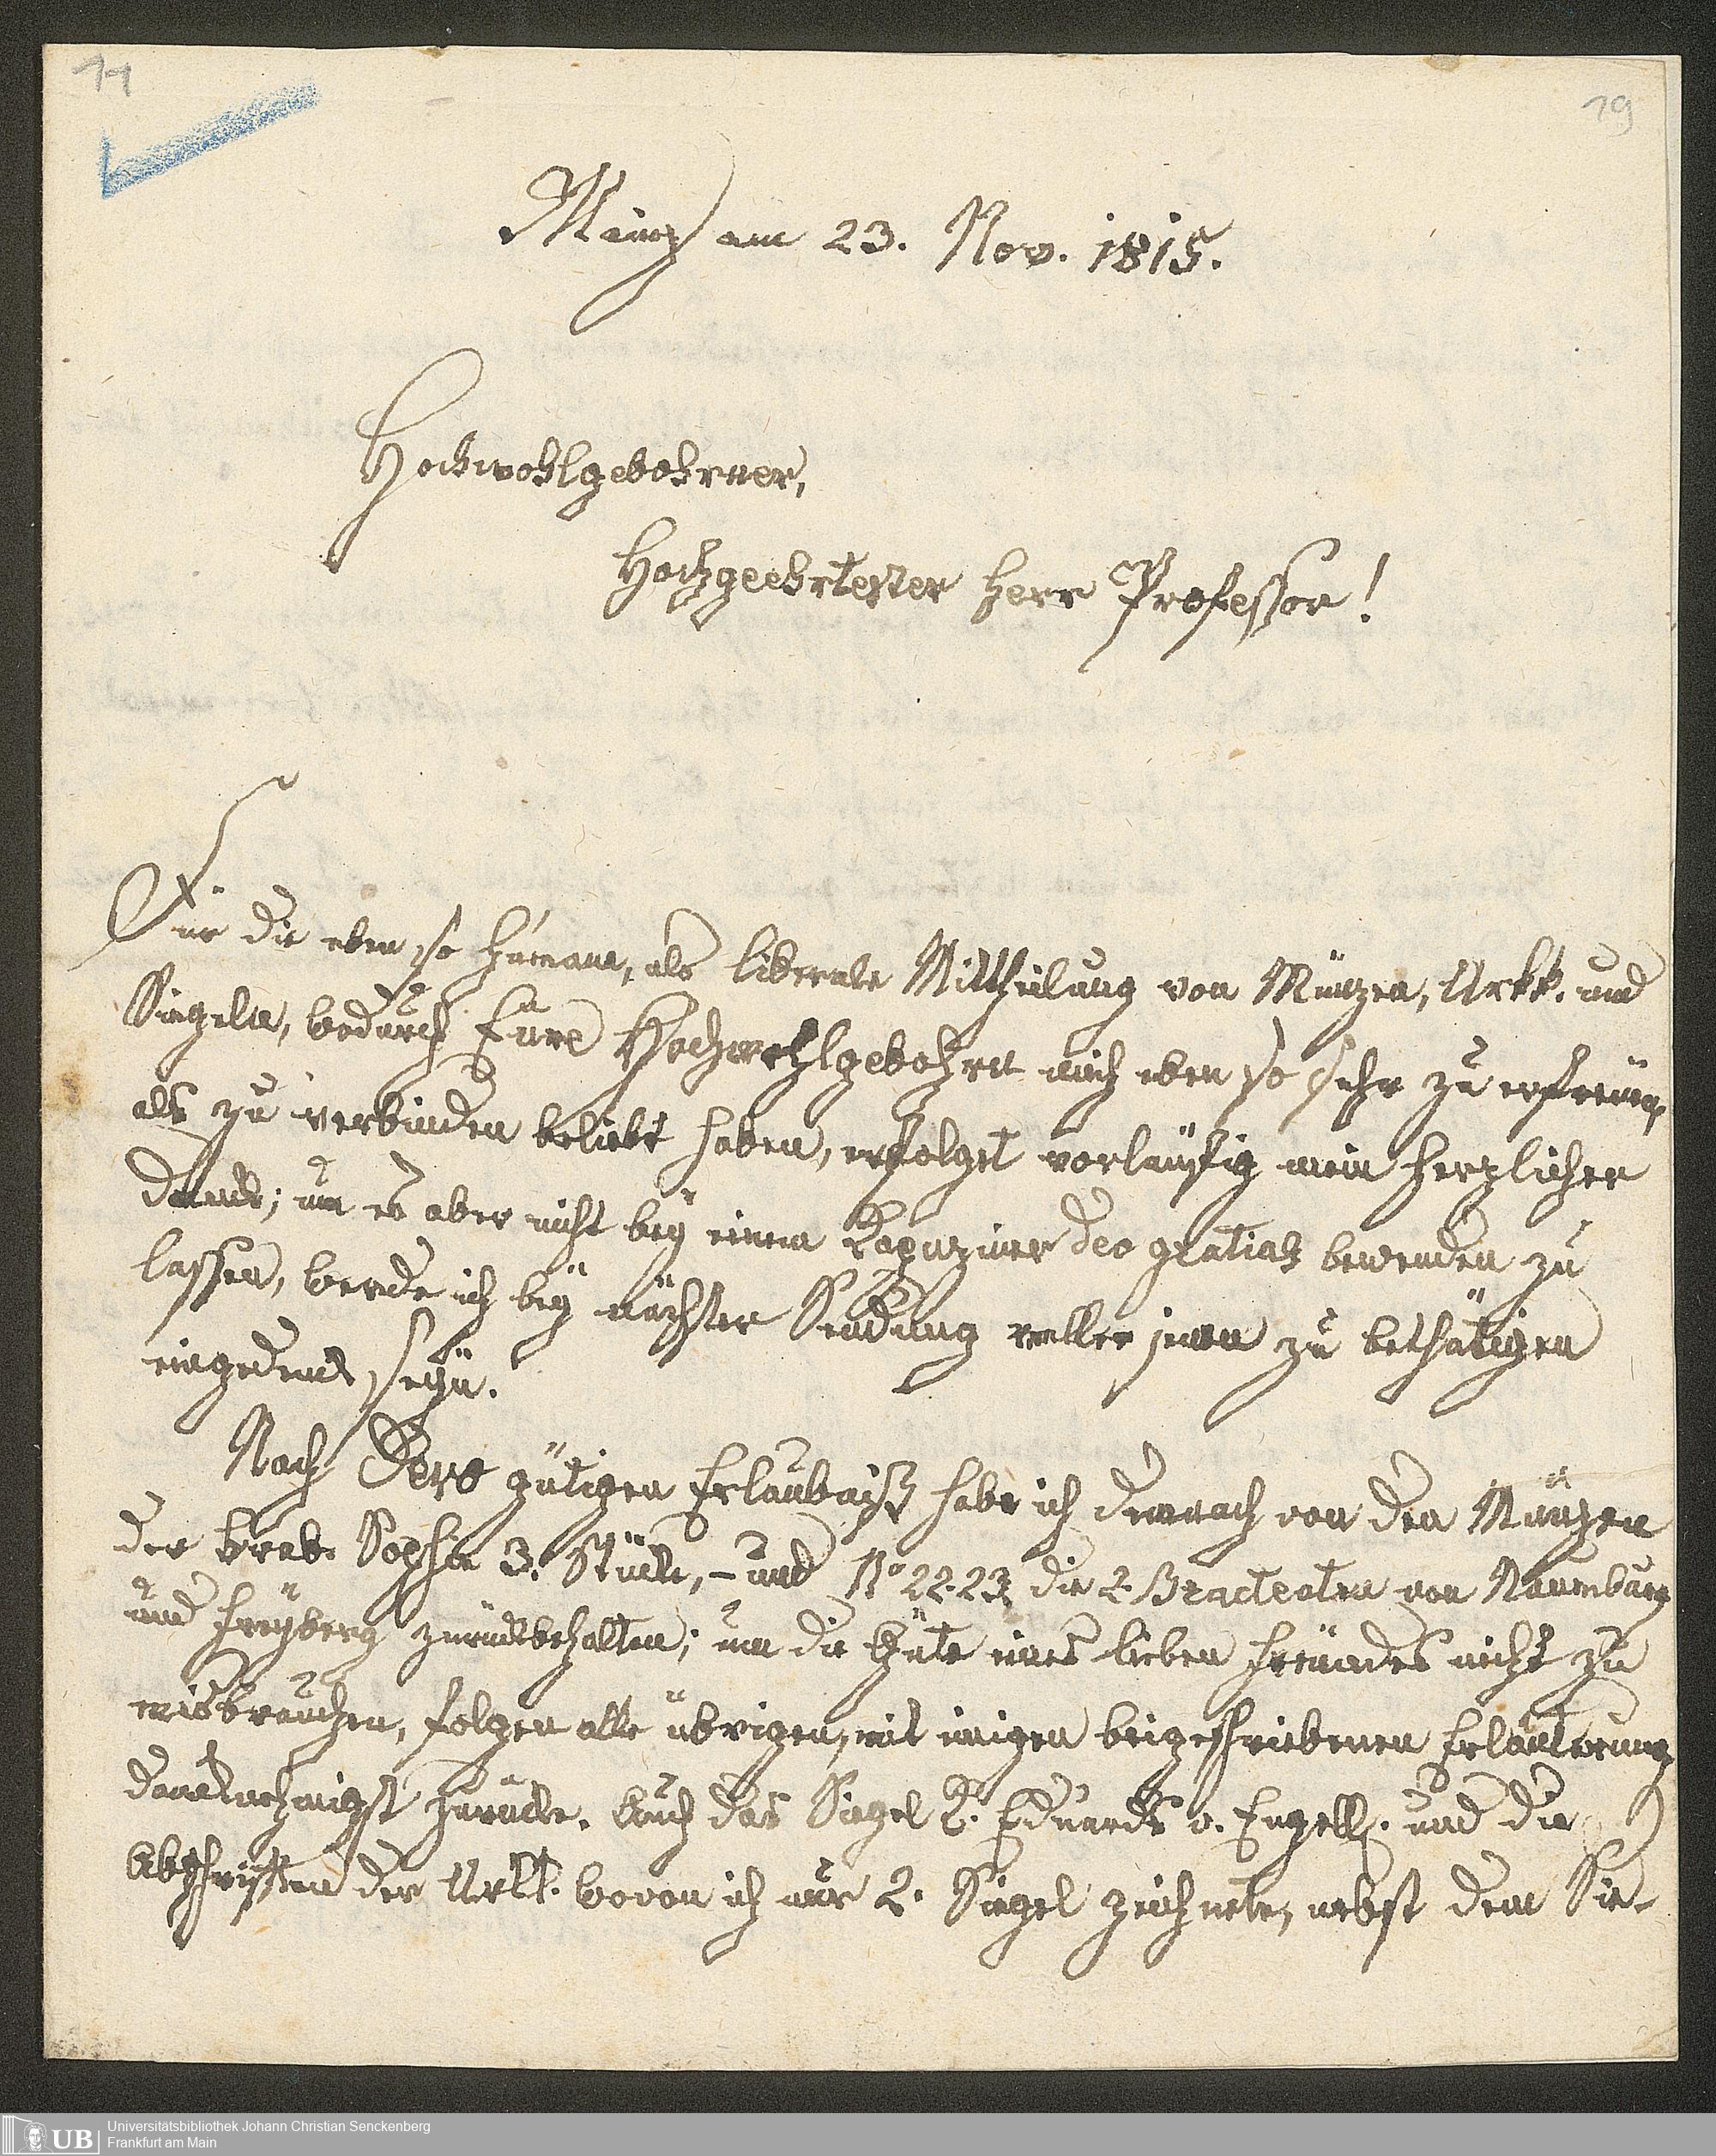 11
19
Mainz am 23. Nov. 1815.
Hochwohlgebohrner,
Hochgeehrtester Herr Professor!
Für die eben so humane, als liberale Mittheilung von Münzen, Urkk. und
Siegeln, wodurch Eure Hochwohlgebohrn mich eben so sehr zu erfreuen,
als zu verbinden beliebt haben, erfolget vorläufig mein herzlicher
Dank; um es aber nicht bey einem Kapuziner Deo gratias bewenden zu
lassen, werde ich bey nächster Sendung jenen zu bethätigen
eingedenk seyn.
Nach Dero gütigen Erlaubniß habe ich demnach von den Münzen
der brab. Sophia 3. Stücke, – und No 22. 23 die 2 Bracteaten von Naumburg
und Freyberg zurückbehalten; um die Güte eines lieben Freundes nicht zu
misbrauchen, folgen alle übrigen, mit einigen beigeschriebenen Erläuterung
danknehmigst zurücke. Auch das Siegel K. Eduards v. Engell. und die
Abschriften der Urkk. wovon ich nur 2. Siegel zeichnete, nebst dem Sie-
UB
Universitätsbibliothek Johann Christian Senckenberg
Frankfurt am Main